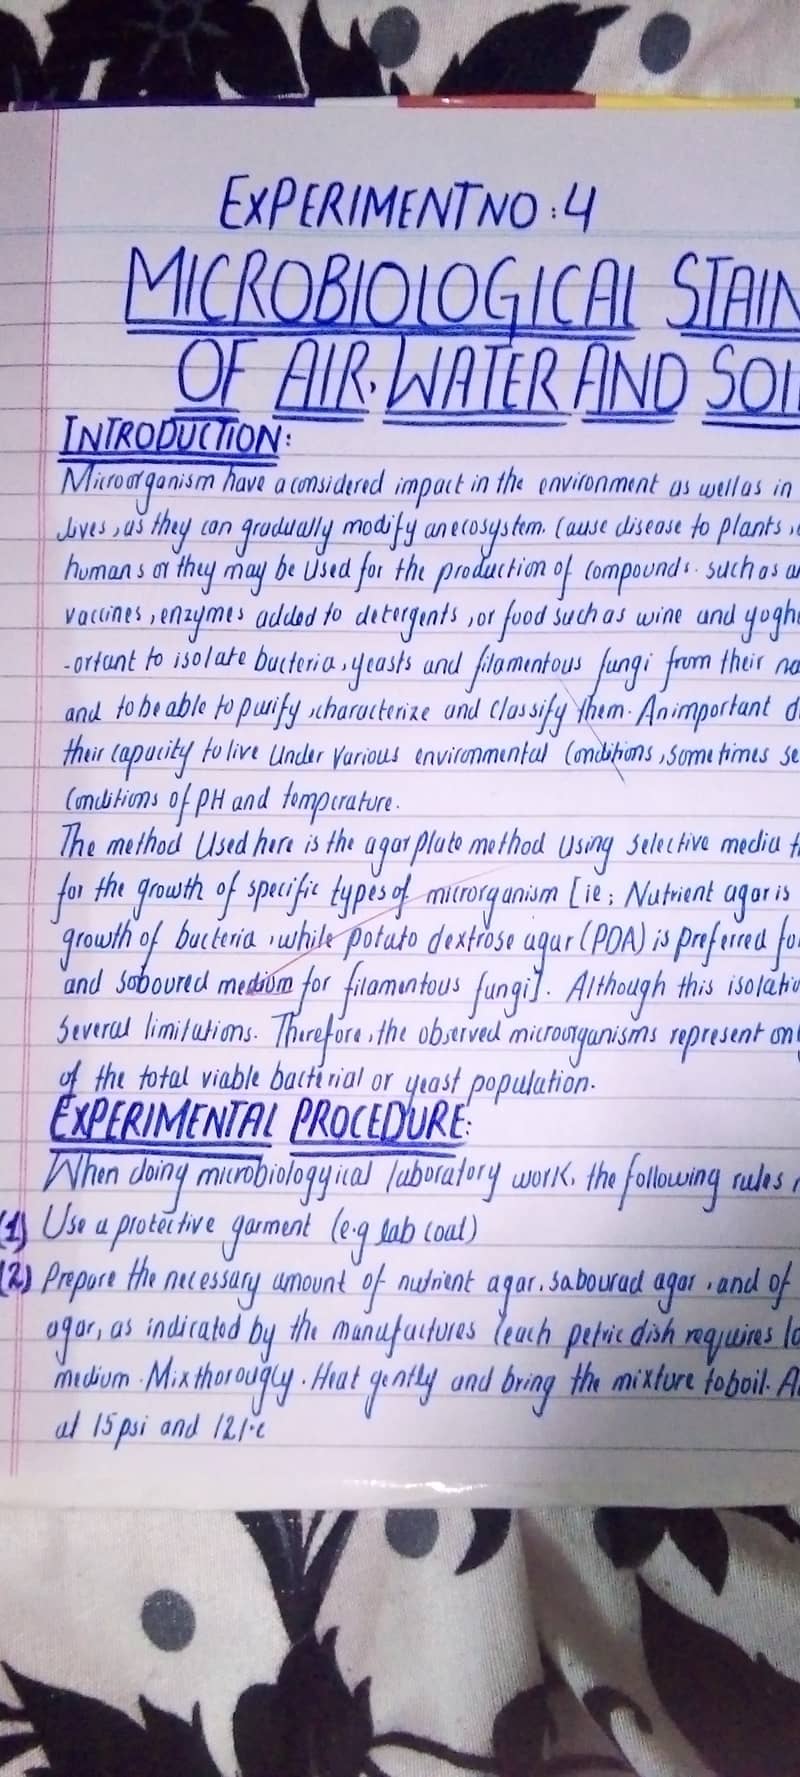 EXPERIMENT NO : 4
MICROBIOLOGICAL STAIN
OF AIR, WATER AND SOI
INTRODUCTION:
Microorganism have a considered impact in the environment as well as in
lives, as they can gradually modify an ecosystem. Cause disease to plants,
humans or they may be used for the production of compounds. such as
vaccines, enzymes added to detergents, or food such as wine and yogh
-ortant to isolate bacteria, yeasts and filamentous fungi from their na
and to be able to purify, characterize and classify them. An important d
their capacity to live under various environmental conditions, sometimes se
Conditions of PH and temperature.
The method Used here is the agar plate method using selective media t
for the growth of specific types of microrganism [ie; Nutrient agar is
growth of bacteria, while potato dextrose agar (PDA) is preferred fo
and saboured medium for filamentous fungi]. Although this isolati
several limitations. Therefore, the observed microorganisms represent on
of the total viable bacterial or yeast population.
EXPERIMENTAL PROCEDURE:
When doing microbiologyical laboratory work, the following rules
(1) Use a protective garment (e.g lab coat)
(2) Prepare the necessary amount of nutrient agar, sabourad agar, and of
agar, as indicated by the manufactures (each petric dish requires
medium. Mix thorougly. Heat gently and bring the mixture to boil. A
at 15 psi and 121°c